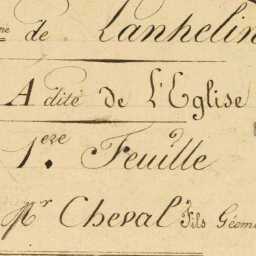 ne de Lanhelin
A dite de L'Eglise
1.ere Feuille
Mr Cheval Fils Géom